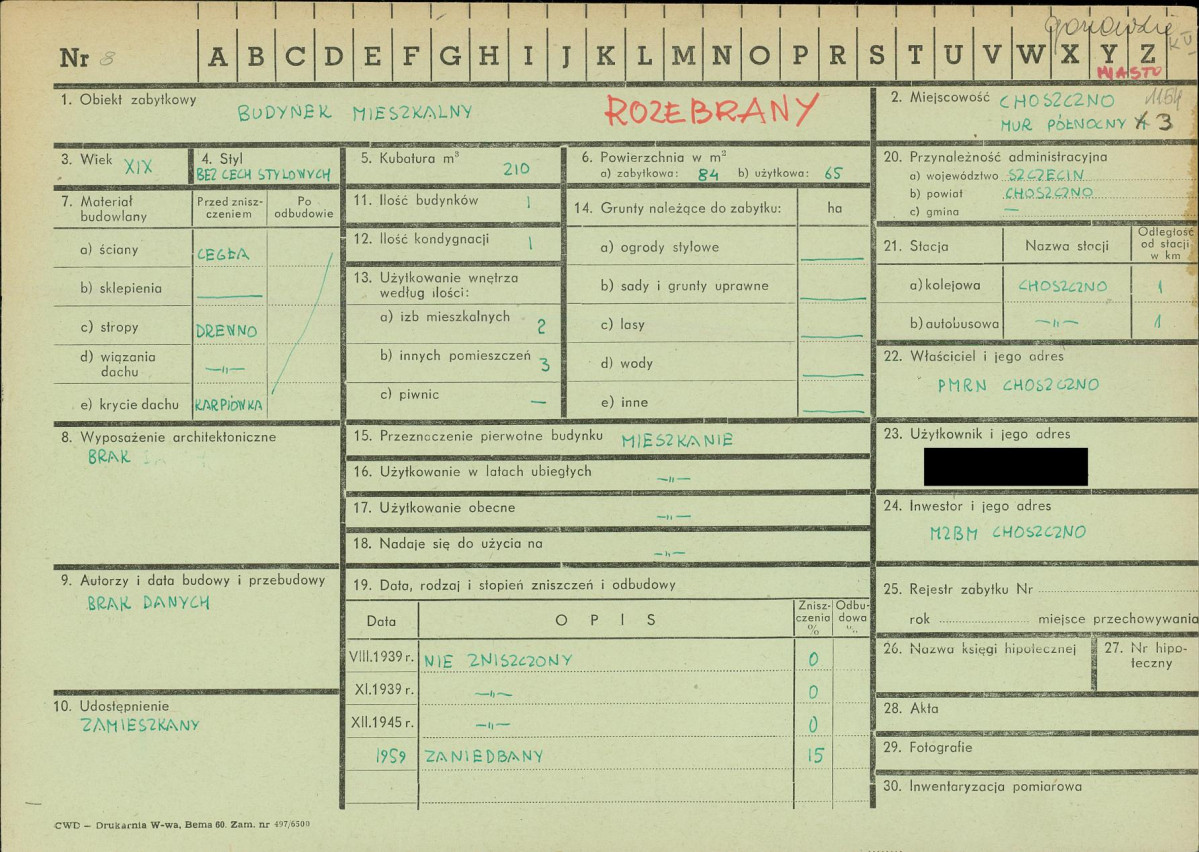 Nr 8 A B C D E F G H I J K L M N O P R S T U V W X Y Z
MIASTO
1. Obiekt zabytkowy BUDYNEK MIESZKALNY ROZEBRANY
2. Miejscowość CHOSZCZNO 1154
MUR PÓŁNOCNY 3
3. Wiek XIX
4. Styl
BEZ CECH STYLOWYCH
5. Kubatura m³
210
6. Powierzchnia w m²
a) zabytkowa: 84 b) użytkowa: 65
20. Przynależność administracyjna
a) województwo SZCZECIN
b) powiat CHOSZCZNO
c) gmina —
7. Materiał budowlany
Przed zniszczeniem
Po odbudowie
a) ściany CEGŁA
b) sklepienia —
c) stropy DREWNO
d) wiązania dachu —„—
e) krycie dachu KARPIÓWKA
11. Ilość budynków 1
12. Ilość kondygnacji 1
13. Użytkowanie wnętrza
według ilości:
a) izb mieszkalnych 2
b) innych pomieszczeń 3
c) piwnic —
14. Grunty należące do zabytku: ha
a) ogrody stylowe —
b) sady i grunty uprawne —
c) lasy —
d) wody —
e) inne —
21. Stacja Nazwa stacji Odległość od stacji w km
a) kolejowa CHOSZCZNO 1
b) autobusowa —„— 1
22. Właściciel i jego adres
PMRN CHOSZCZNO
8. Wyposażenie architektoniczne
BRAK
15. Przeznaczenie pierwotne budynku MIESZKANIE
16. Użytkowanie w latach ubiegłych —„—
17. Użytkowanie obecne —„—
18. Nadaje się do użycia na —„—
23. Użytkownik i jego adres
24. Inwestor i jego adres
MZBM CHOSZCZNO
9. Autorzy i data budowy i przebudowy
BRAK DANYCH
19. Data, rodzaj i stopień zniszczeń i odbudowy
Data OPIS Zniszczenia % Odbudowa %
VIII.1939 r. NIE ZNISZCZONY 0
XI.1939 r. —„— 0
XII.1945 r. —„— 0
1959 ZANIEDBANY 15
25. Rejestr zabytku Nr
rok miejsce przechowywania
26. Nazwa księgi hipotecznej
27. Nr hipoteczny
10. Udostępnienie
ZAMIESZKANY
28. Akta
29. Fotografie
30. Inwentaryzacja pomiarowa
CWD — Drukarnia W-wa, Bema 60. Zam. nr 497/6500